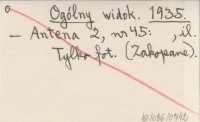 Ogólny widok. 1935.
– Antena 2, nr 45: , il.
Tylko fot. (Zakopane).